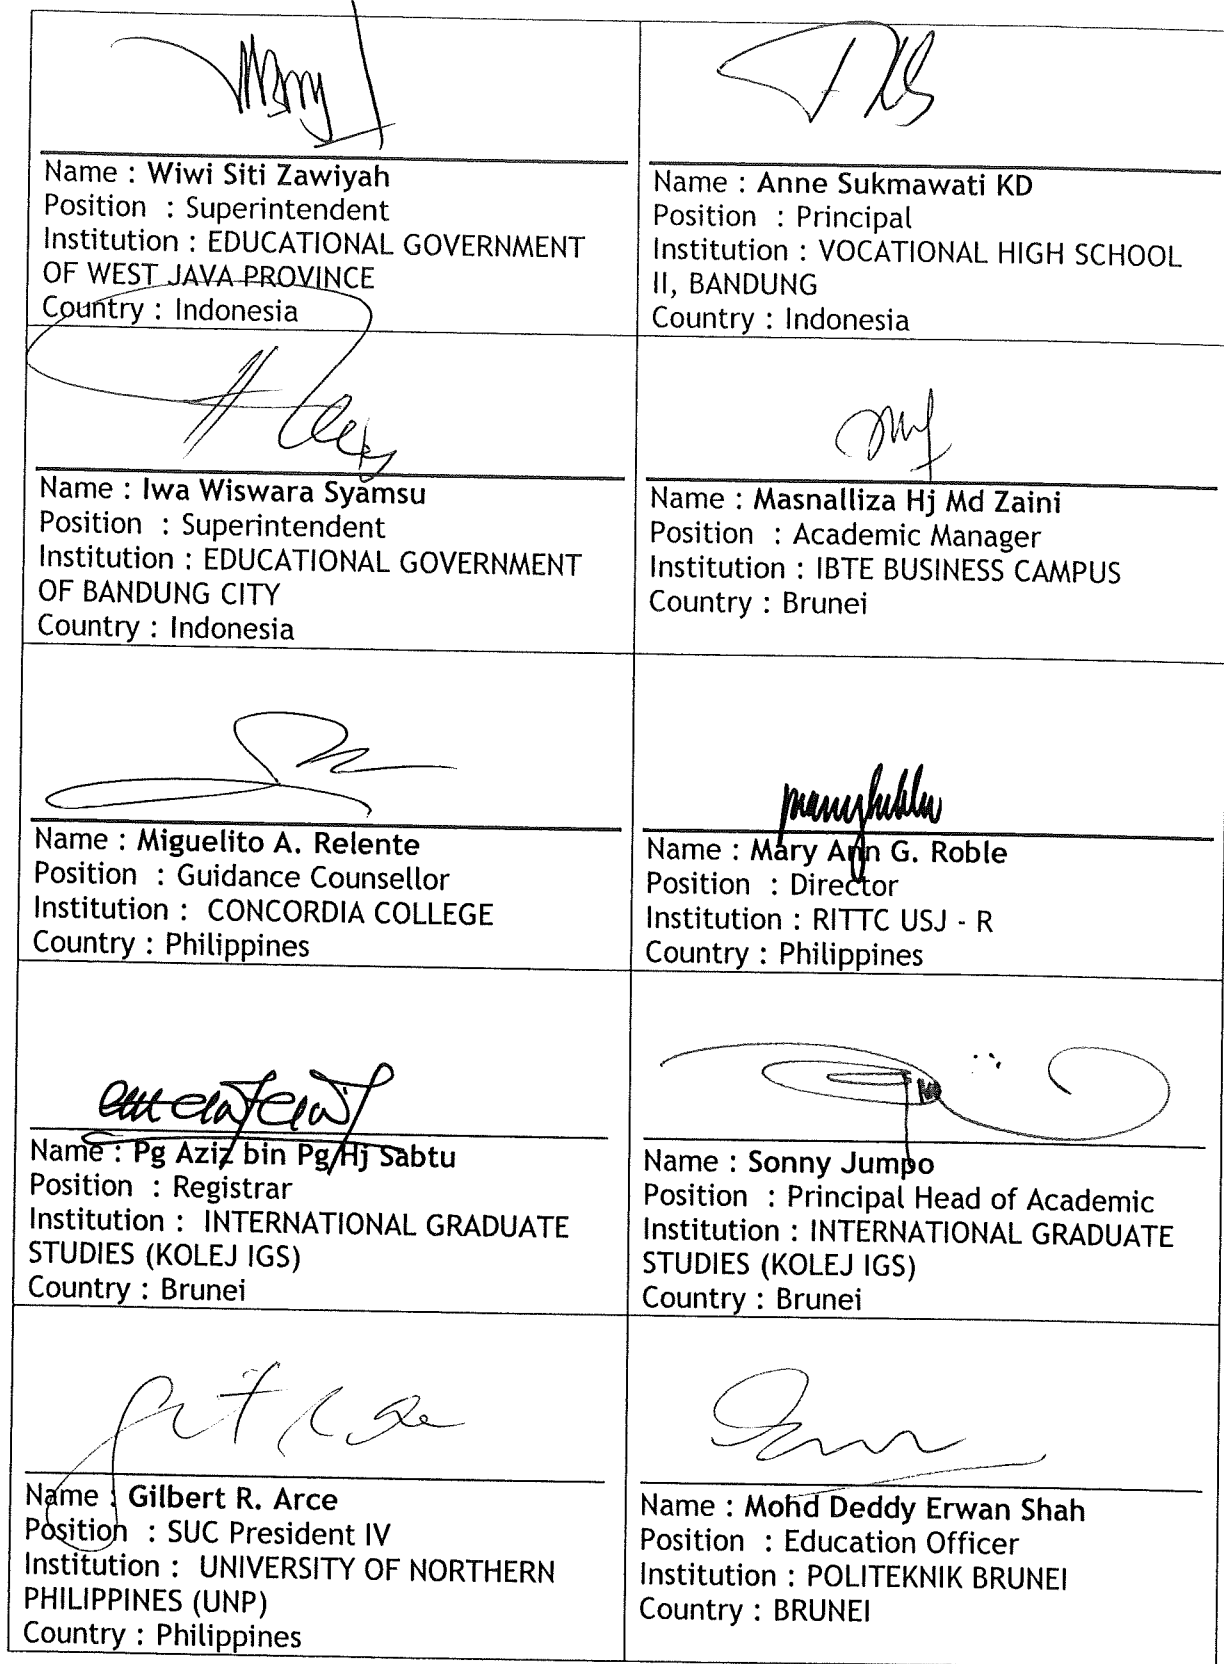 Name : Wiwi Siti Zawiyah
Position : Superintendent
Institution : EDUCATIONAL GOVERNMENT
OF WEST JAVA PROVINCE
Country : Indonesia
Name : Anne Sukmawati KD
Position : Principal
Institution : VOCATIONAL HIGH SCHOOL
II, BANDUNG
Country : Indonesia
Name : Iwa Wiswara Syamsu
Position : Superintendent
Institution : EDUCATIONAL GOVERNMENT
OF BANDUNG CITY
Country : Indonesia
Name : Masnalliza Hj Md Zaini
Position : Academic Manager
Institution : IBTE BUSINESS CAMPUS
Country : Brunei
Name : Miguelito A. Relente
Position : Guidance Counsellor
Institution : CONCORDIA COLLEGE
Country : Philippines
Name : Mary Ann G. Roble
Position : Director
Institution : RITTC USJ - R
Country : Philippines
Name : Pg Aziz bin Pg Hj Sabtu
Position : Registrar
Institution : INTERNATIONAL GRADUATE
STUDIES (KOLEJ IGS)
Country : Brunei
Name : Sonny Jumpo
Position : Principal Head of Academic
Institution : INTERNATIONAL GRADUATE
STUDIES (KOLEJ IGS)
Country : Brunei
Name : Gilbert R. Arce
Position : SUC President IV
Institution : UNIVERSITY OF NORTHERN
PHILIPPINES (UNP)
Country : Philippines
Name : Mohd Deddy Erwan Shah
Position : Education Officer
Institution : POLITEKNIK BRUNEI
Country : BRUNEI